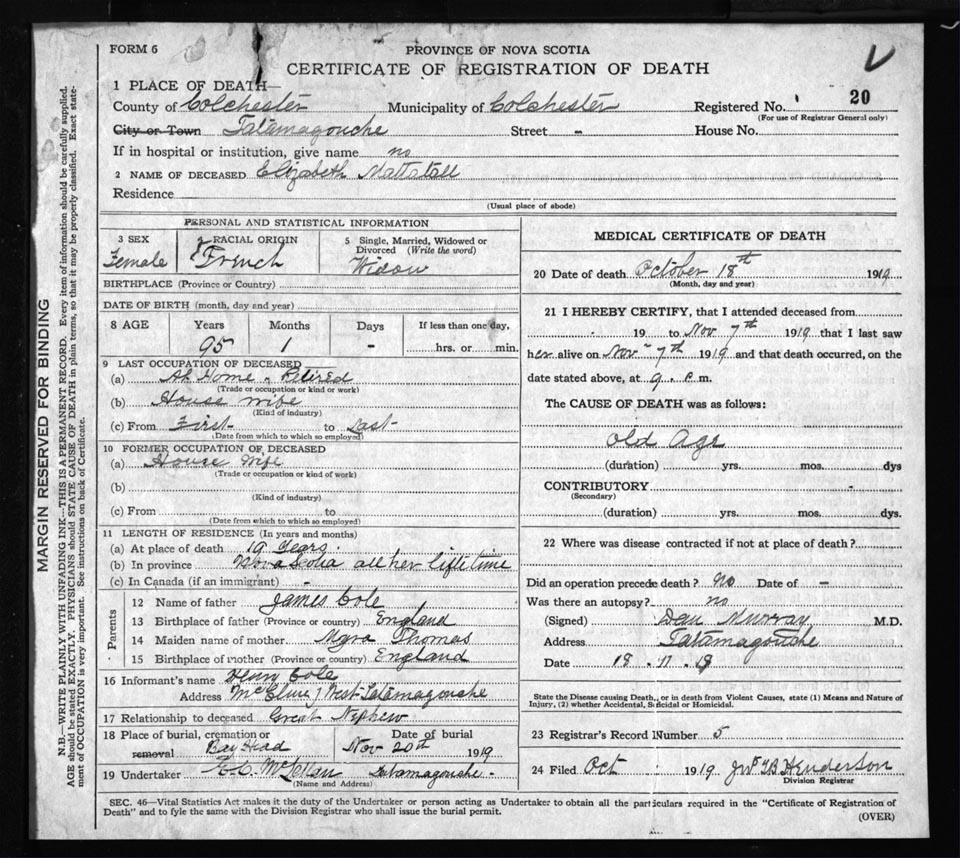 FORM 6
PROVINCE OF NOVA SCOTIA
CERTIFICATE OF REGISTRATION OF DEATH
1 PLACE OF DEATH—
County of Colchester Municipality of Colchester Registered No. 20
(For use of Registrar General only)
City or Town Tatamagouche Street - House No.
If in hospital or institution, give name no
2 NAME OF DECEASED Elizabeth Mattatall
Residence
(Usual place of abode)
PERSONAL AND STATISTICAL INFORMATION
3 SEX Female
RACIAL ORIGIN French
5 Single, Married, Widowed or Divorced (Write the word) Widow
BIRTHPLACE (Province or Country)
DATE OF BIRTH (month, day and year)
8 AGE Years Months Days If less than one day,
95 1 - hrs. or min.
9 LAST OCCUPATION OF DECEASED
(a) At Home Retired
(Trade or occupation or kind or work)
(b) House wife
(Kind of industry)
(c) From First to Last
(Date from which to which so employed)
10 FORMER OCCUPATION OF DECEASED
(a) House wife
(Trade or occupation or kind of work)
(b)
(Kind of industry)
(c) From to
(Date from which to which so employed)
11 LENGTH OF RESIDENCE (In years and months)
(a) At place of death 19 Years.
(b) In province Nova Scotia all her life time
(c) In Canada (if an immigrant) -
Parents
12 Name of father James Cole
13 Birthplace of father (Province or country) England
14 Maiden name of mother Thomas
15 Birthplace of mother (Province or country) England
16 Informant's name Henry Cole
Address West Tatamagouche
17 Relationship to deceased Great Nephew
18 Place of burial, cremation or removal Bay Head
Date of burial Nov 20th 1919
19 Undertaker McLellan Tatamagouche -
(Name and Address)
MEDICAL CERTIFICATE OF DEATH
20 Date of death October 18th 1919
(Month, day and year)
21 I HEREBY CERTIFY, that I attended deceased from
19 to Nov 7th 1919 that I last saw
her alive on Nov 7th 1919 and that death occurred, on the
date stated above, at 9 m.
The CAUSE OF DEATH was as follows:
Old Age
(duration) yrs. mos. dys
CONTRIBUTORY
(Secondary)
(duration) yrs. mos. dys.
22 Where was disease contracted if not at place of death?
Did an operation precede death? No Date of -
Was there an autopsy? no
(Signed) Dan Murray M.D.
Address Tatamagouche
Date 18 . 11 . 19
State the Disease causing Death, or in death from Violent Causes, state (1) Means and Nature of
Injury, (2) whether Accidental, Suicidal or Homicidal.
23 Registrar's Record Number 5
24 Filed Oct 1919 Henderson
Division Registrar
SEC. 46—Vital Statistics Act makes it the duty of the Undertaker or person acting as Undertaker to obtain all the particulars required in the "Certificate of Registration of
Death" and to fyle the same with the Division Registrar who shall issue the burial permit.
(OVER)
MARGIN RESERVED FOR BINDING
N.B.—WRITE PLAINLY WITH UNFADING INK—THIS IS A PERMANENT RECORD. Every item of information should be carefully supplied.
AGE should be stated EXACTLY. PHYSICIANS should STATE CAUSE OF DEATH in plain terms, so that it may be properly classified. Exact state-
ment of OCCUPATION is very important. See instructions on back of Certificate.